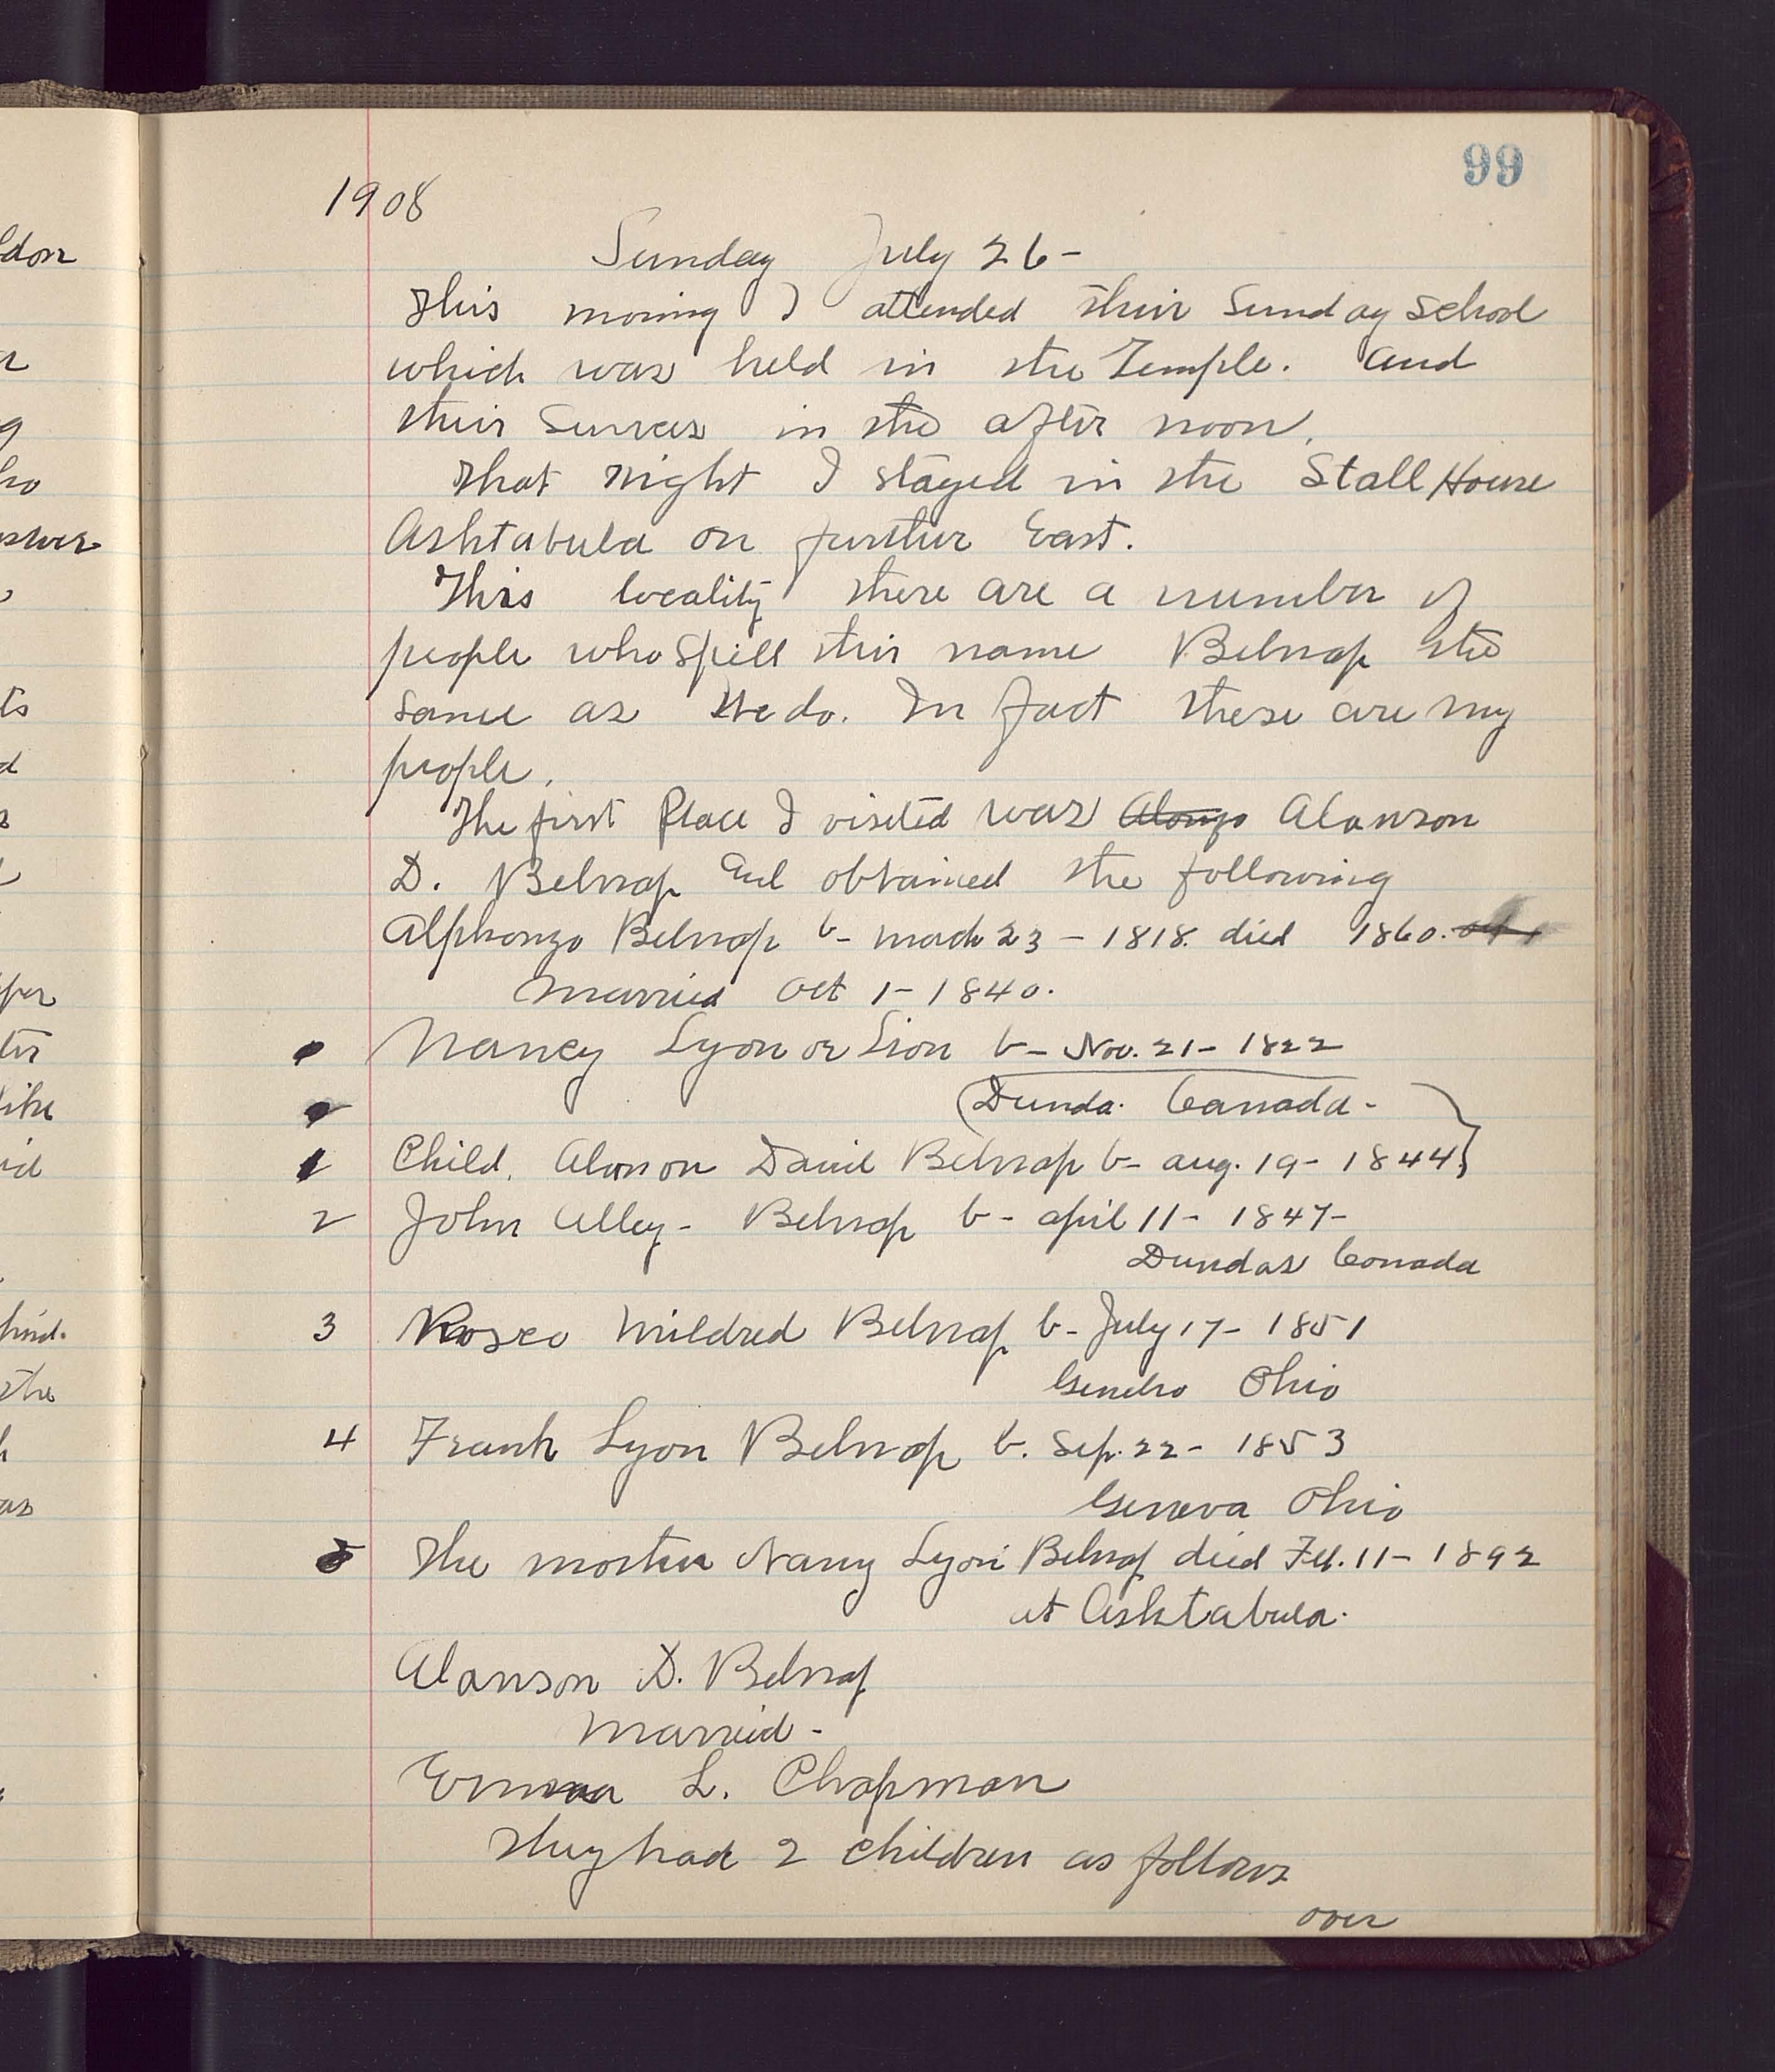 99
1908
Sunday July 26-
This moring I attended thier Sunday School
which was held in the Temple. and
thier Survices in the after noon.
That Night I stayed in the Stall House
Ashtabula on further East.
This locality there are a number of
people who spell thir name Belnap the
same as We do. In fact these are my
people.
The first Place I visited was Alonzo Alanson
D. Belnap and obtained the following
Alphonzo Belnap b- march 23 - 1818. died 1860.
Married Oct 1- 1840.
Nancy Lyon or Lion b- Nov. 21- 1822
(Dunda. Canada-
1 Child. Alanson David Belnap b- aug. 19- 1844
2 John Alley- Belnap b- april 11- 1847-
Dundas Canada
3 Rosco Mildred Belnap b- July 17- 1851
Ohio
4 Frank Lyon Belnap b. Sep. 22- 1853
Geneva Ohio
The mother Nancy Lyon Belnap died Feb. 11- 1892
at Ashtabula.
Alanson D. Belnap
Married-
Emma L. Chapman
They had 2 children as follows
over